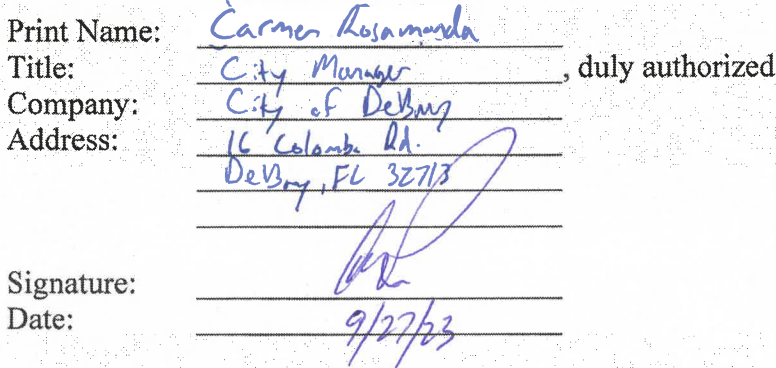 Print Name: Carmen Rosamonda
Title: City Manager, duly authorized
Company: City of DeBary
Address: 16 Colomba Rd.
DeBary, FL 32713
Signature:
Date: 9/27/23